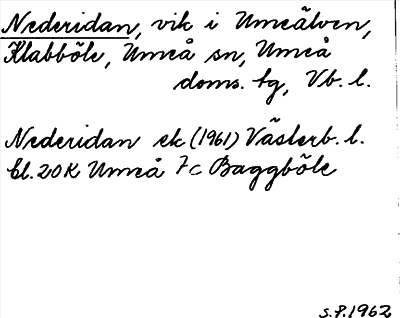 Nederidan, vik i Umeälven,
Klabböle, Umeå sn, Umeå
doms. tg, Vb. l.
Nederidan ek (1961) Västerb. l.
bl. 20K Umeå 7c Baggböle
S.P. 1962